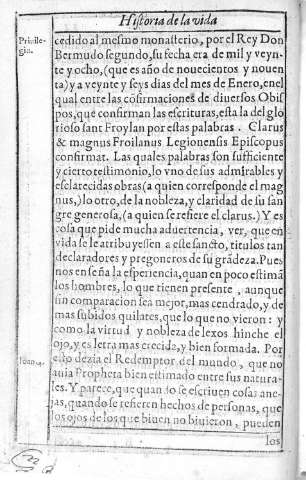 Historia de la vida
Privile-
gio.
cedido al mesmo monasterio, por el Rey Don
Bermudo segundo, su fecha era de mil y veyn-
te y ocho, (que es año de nouecientos y nouen
ta) y a veynte y seys dias del mes de Enero, en el
qual entre las cõfirmaciones de diuersos Obis
pos, que confirman las escrituras, esta la del glo
rioso sant Froylan por estas palabras. Clarus
& magnus Froilanus Legionensis Episcopus
confirmat. Las quales palabras son sufficiente
y cierto testimonio, lo vno de sus admirables y
esclarecidas obras (a quien corresponde el mag
nus,) lo otro, de la nobleza, y claridad de su san
gre generosa, (a quien se refiere el clarus.) Y es
cosa que pide mucha aduertencia, ver, que en
vida se le atribuyessen a este sancto, titulos tan
declaradores y pregoneros de su grãdeza. Pues
nos enseña la esperiencia, quan en poco estimã
los hombres, lo que tienen presente, aunque
sin comparacion sea mejor, mas cendrado, y de
mas subidos quilates, que lo que no vieron: y
como la virtud y nobleza de lexos hinche el
ojo, y es letra mas crecida, y bien formada. Por
esso dezia el Redemptor del mundo, que no
auia Propheta bien estimado entre sus natura-
Ioan. 4.
les. Y parece, que quando se escriuen cosas ane-
jas, quando se refieren hechos de personas, que
los ojos de los que biuen no biuieron, pueden
los
22